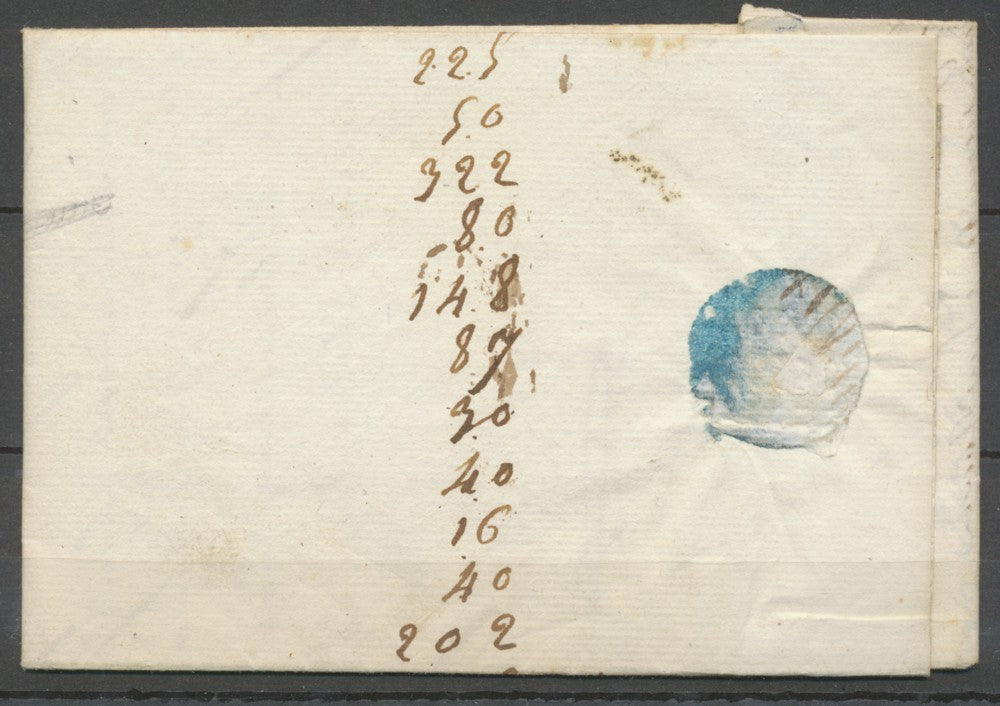 225
50
322
80
148
87
30
40
16
40
202